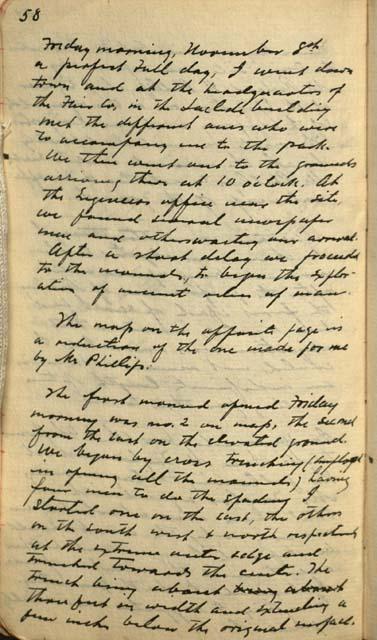 58
Friday morning, November 8th
a perfect Fall day, I went down
town and at the headquarters of
the Fair Co, in the Laclede building
met the different ones who were
to accompany me to the park.
We then went out to the grounds
arriving there at 10 o'clock. At
the Engineers office near the site
we found several newspaper
men and others waiting our arrival.
After a short delay we proceeded
to the mounds, to begin the explor-
ation of ancient of man.
The map on the opposite page is
a reduction of the one made for me
by Mr Phillips.
The first mound opened Friday
morning was no. 2 on map, the second
from the East on the elevated ground.
We began by cross trenching, (employed
in opening all the mounds,) having
four men to do the spading I
started one on the east, the others
on the south west & north respectively
at the extreme outer edge and
trenched towards the center. The
trench being about
three feet in width and extending a
few inches below the original surface.